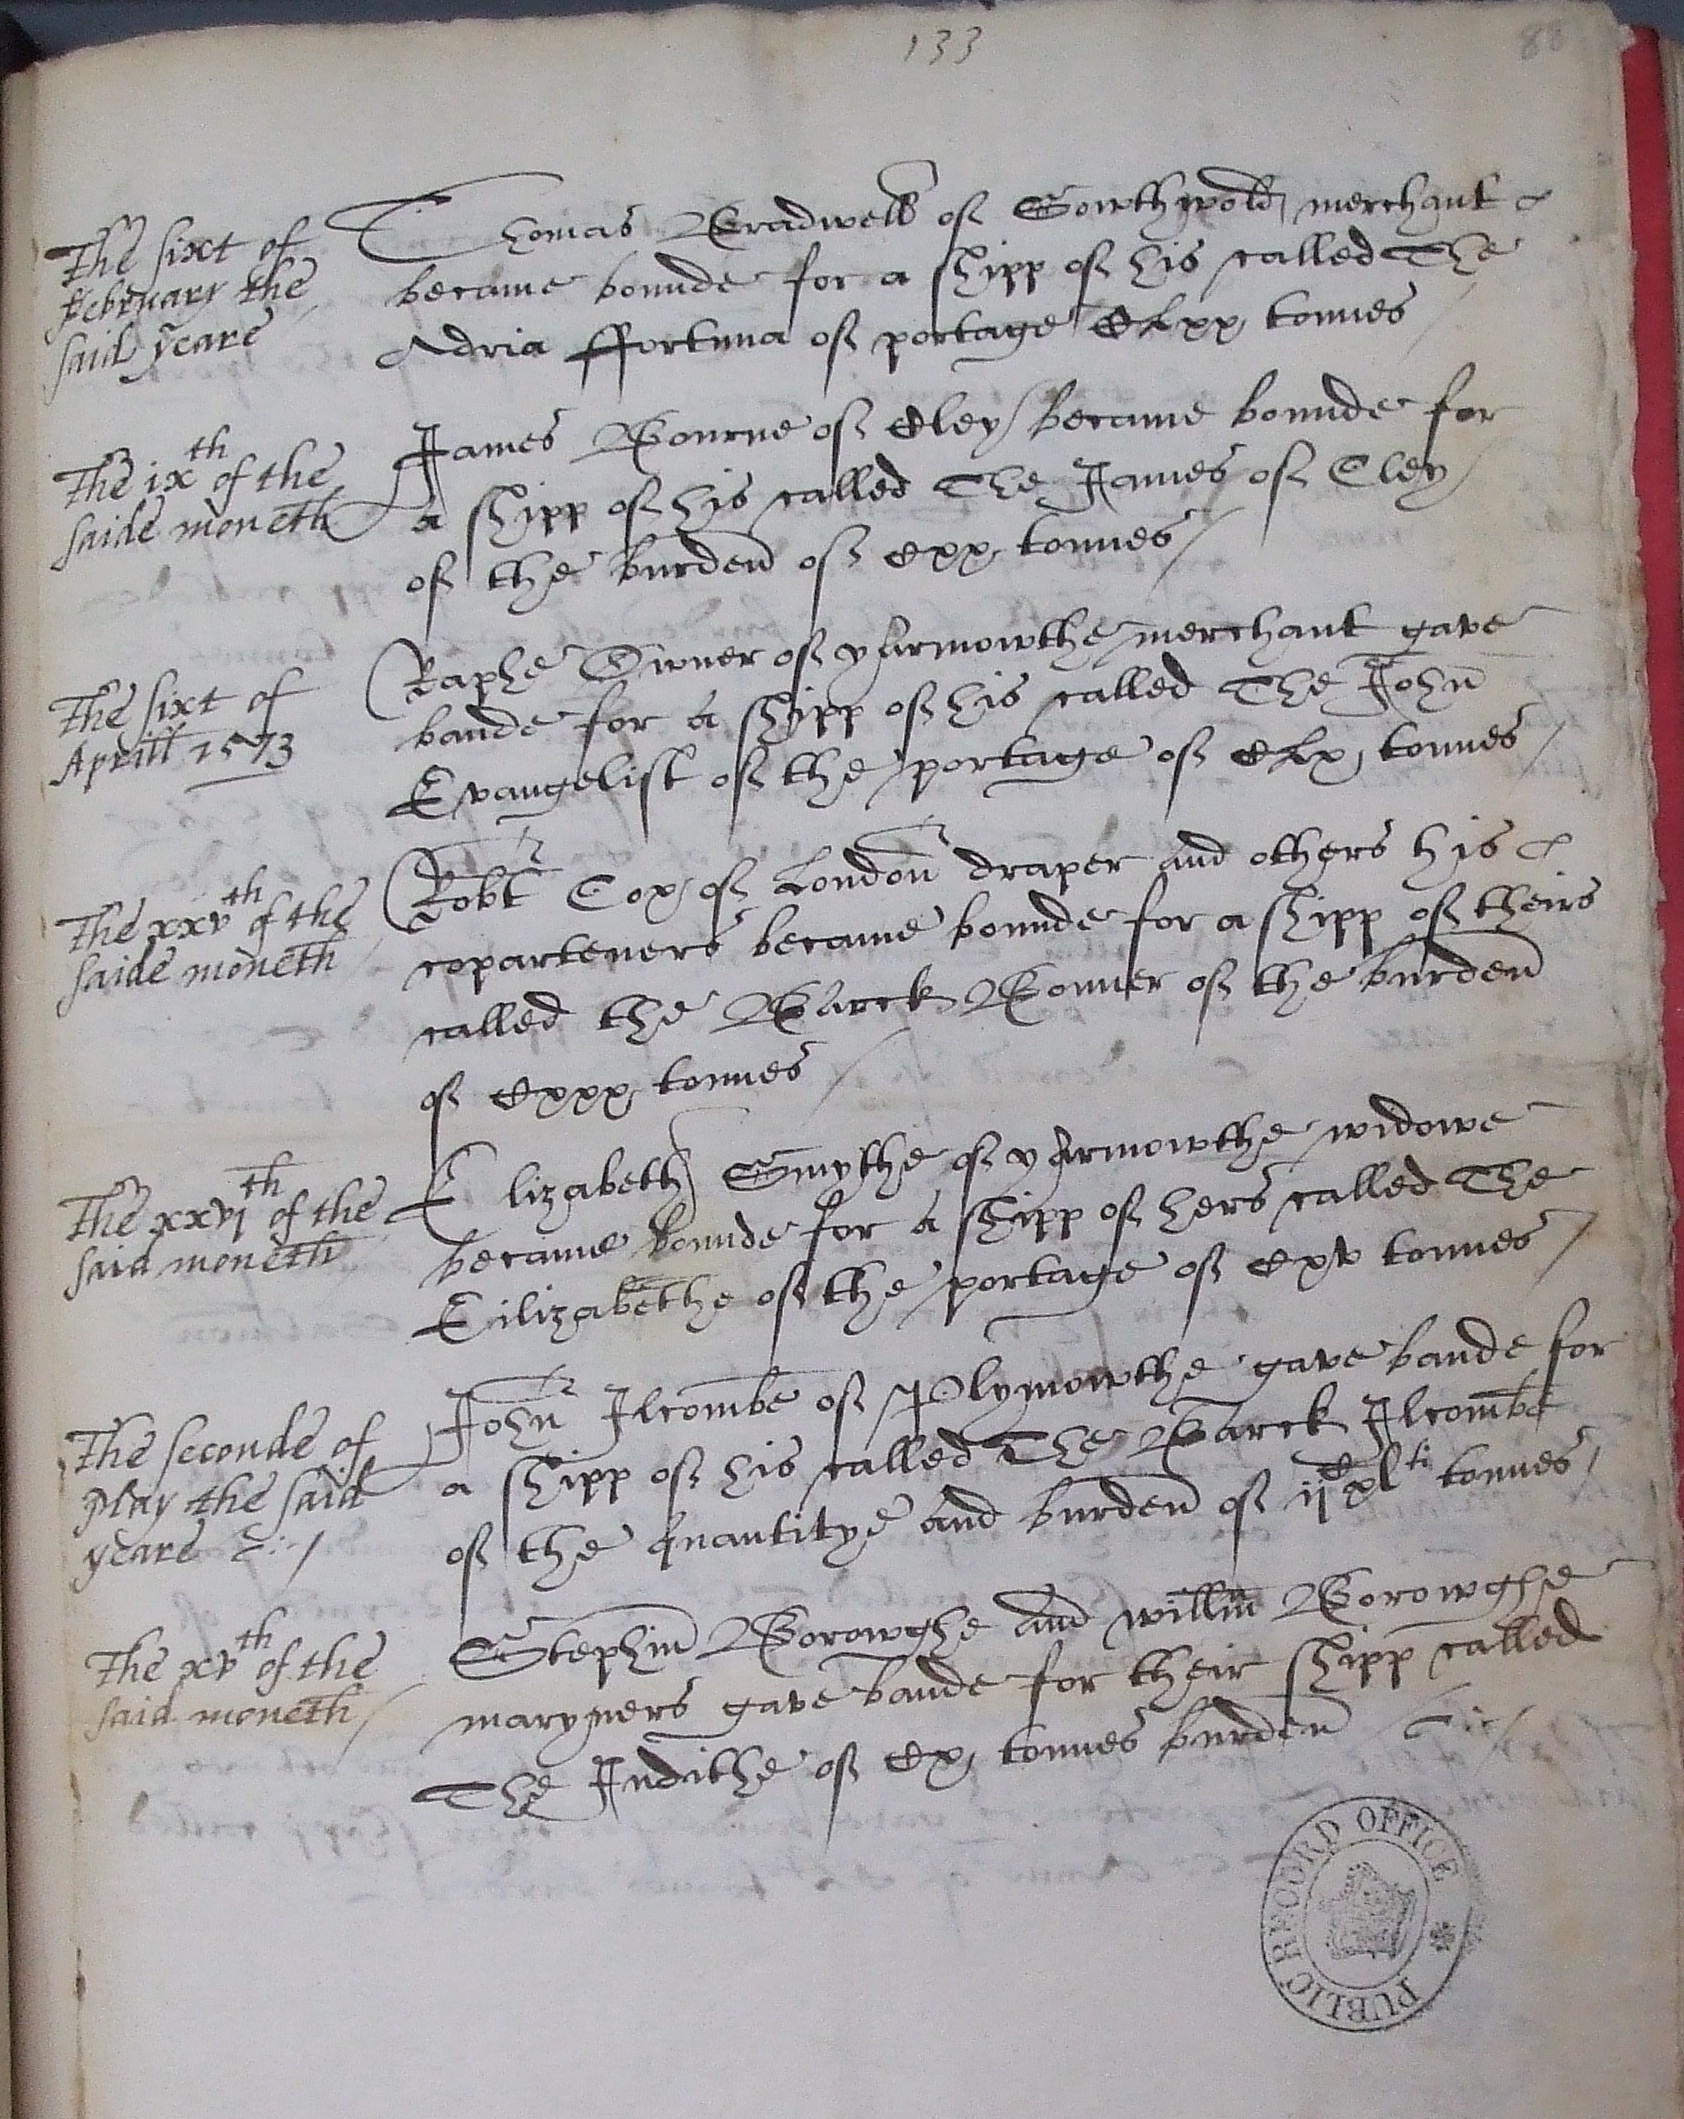 133
88
The sixt of
february the
said yeare
Thomas Bradwell of Sowthwold merchant
became bounde for a shipp of his called The
Adria ffortuna of portage CLxx tonnes
The ix th of the
saide moneth
James Bourne of Cley became bounde for
a shipp of his called The James of Cley
of the burden of Cxx tonnes
The sixt of
Aprill 1573
Raphe Owner of yarmowthe merchant gave
bande for a shipp of his called The John
Evangelist of the portage of CLx tonnes
The xxv th of the
saide moneth
Robt Cox of London draper and others his
coparteners became bounde for a shipp of theirs
called the Barck Bonner of the burden
of Cxxx tonnes
The xxvj th of the
said moneth
Elizabeth Smythe of yarmowthe widowe
became bounde for a shipp of hers called The
Eilizabethe of the portage of Cxv tonnes
The seconde of
May the said
yeare
John Ilcombe of Plymowthe gave bande for
a shipp of his called The Barck Ilcombe
of the quantitye and burden of ij C xl ti tonnes
The xv th of the
said moneth
Stephin Borowghe and willm Borowghe
maryners gave bande for their shipp called
The Judithe of Cx tonnes burden
PUBLIC RECORD OFFICE